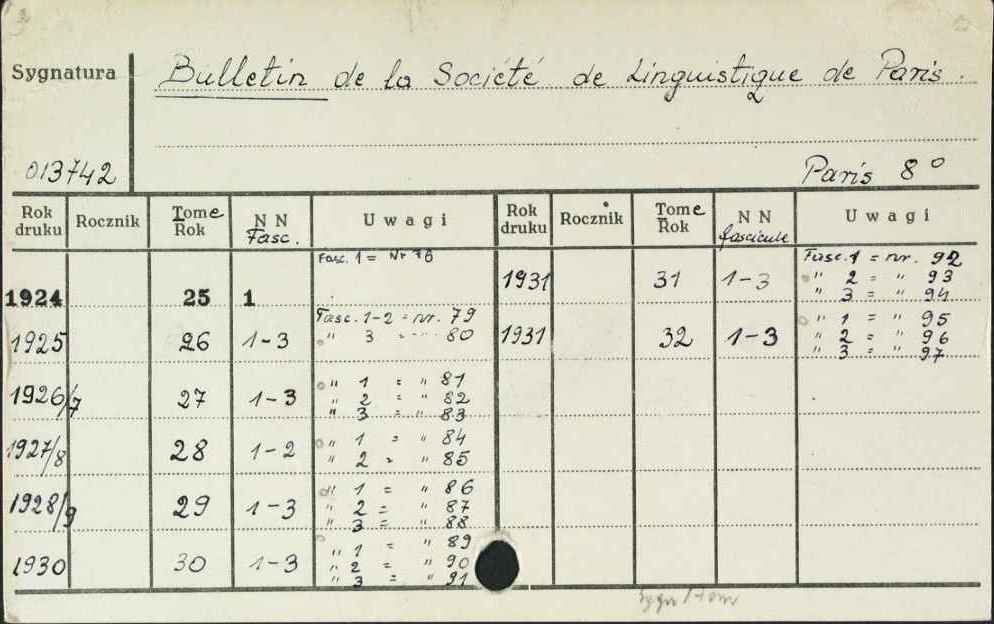 Sygnatura
Bulletin de la Société de Linguistique de Paris.
013742
Paris 8°
Rok druku Rocznik Tome Rok NN Fasc. Uwagi Rok druku Rocznik Tome Rok NN fascicule Uwagi
1924 25 1 Fasc. 1 = Nr 78
1925 26 1-3 Fasc. 1-2 = nr. 79
" 3 = 80
1926/7 27 1-3 " 1 = " 81
" 2 = " 82
" 3 = " 83
1927/8 28 1-2 " 1 = " 84
" 2 = " 85
1928/9 29 1-3 " 1 = " 86
" 2 = " 87
" 3 = " 88
1930 30 1-3 " 1 = " 89
" 2 = " 90
" 3 = " 91
1931 31 1-3 Fasc. 1 = nr. 92
" 2 = " 93
" 3 = " 94
1931 32 1-3 " 1 = " 95
" 2 = " 96
" 3 = " 97